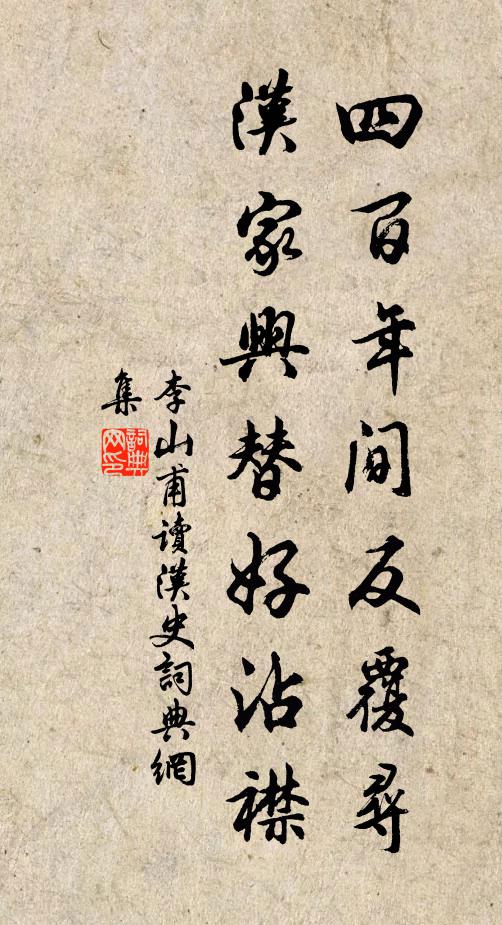 四百年間反覆尋
漢家興替好沾襟
李山甫讀漢史詞典網
集
詞典網印